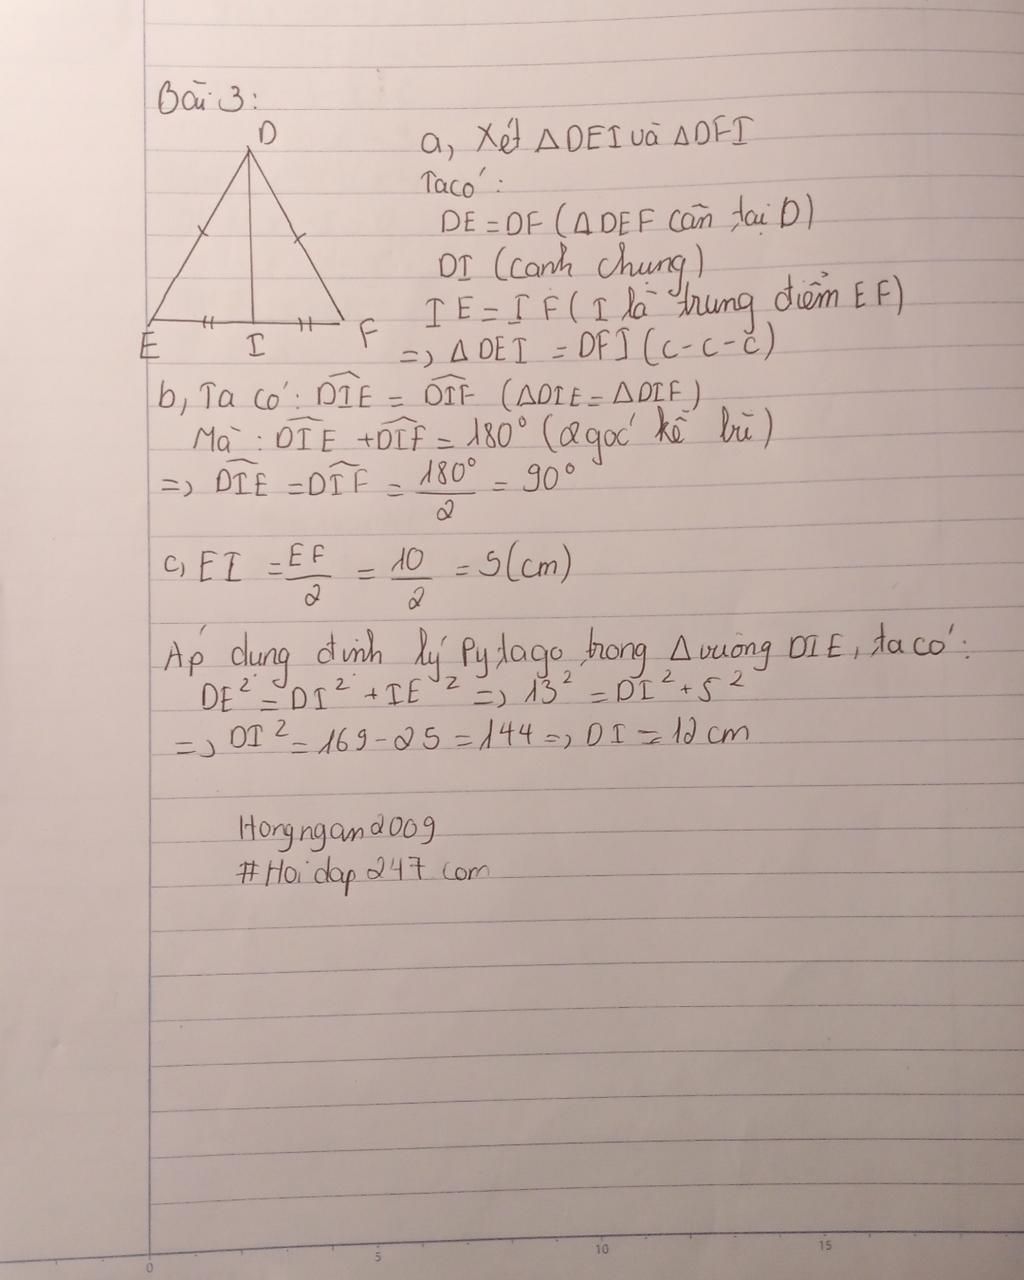 Bài 3:
D
E I F
a, Xét ΔDEI và ΔDFI
Ta có:
DE = DF (ΔDEF cân tại D)
DI (canh chung)
IE = IF (I là trung điểm EF)
=> ΔDEI = DFI (c-c-c)
b, Ta có: \widehat{DIE} = \widehat{DIF} (ΔDIE = ΔDIF)
Mà: \widehat{DIE} + \widehat{DIF} = 180° (2 góc kề bù)
=> \widehat{DIE} = \widehat{DIF} = \frac{180°}{2} = 90°
c, EI = \frac{EF}{2} = \frac{10}{2} = 5 (cm)
Áp dung định lý Pytago trong Δ vuông DIE, ta có:
DE² = DI² + IE² => 13² = DI² + 5²
=> DI² = 169 - 25 = 144 => DI = 12 cm
Hongngan2009
#Hoidap247 com
0 5 10 15